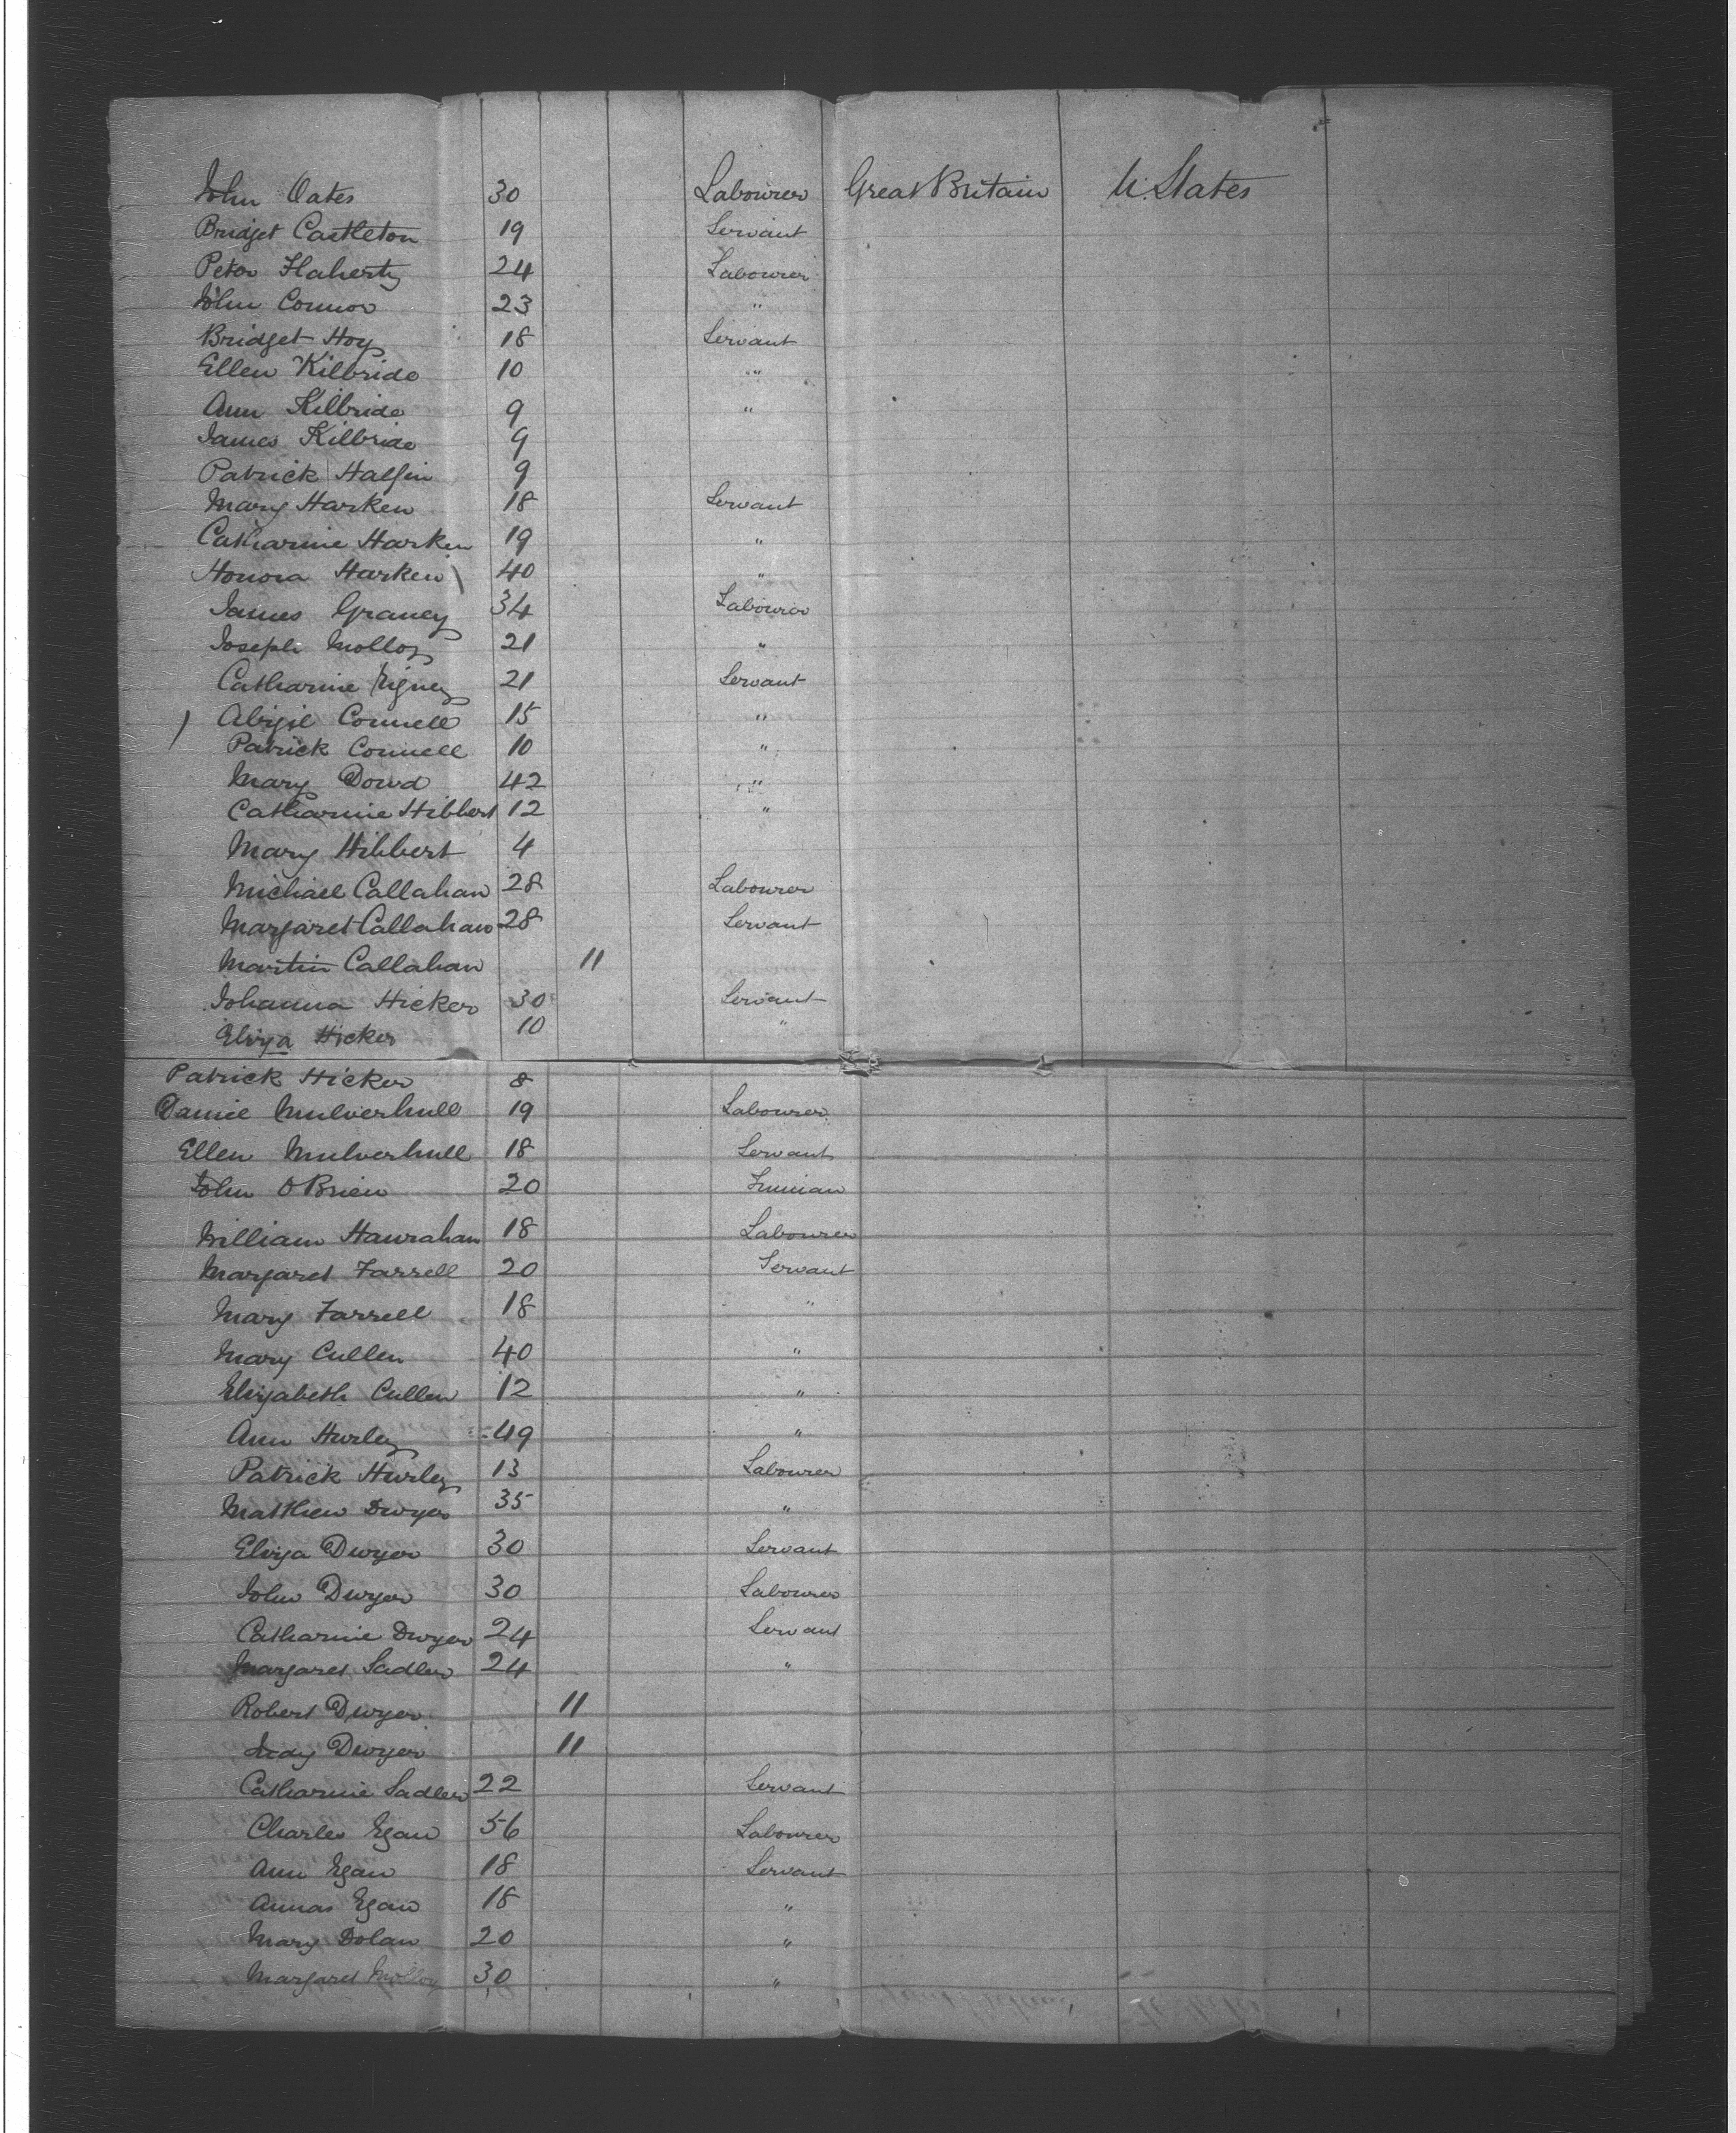 John Oates 30 Labourer Great Britain U. States
Bridget Castleton 19 Servant
Peter Flaherty 24 Labourer
John Connor 23 "
Bridget Hoy 18 Servant
Ellen Kilbride 10 "
Ann Kilbride 9 "
James Kilbride 9
Patrick Halfin 9
Mary Harken 18 Servant
Catharine Harken 19 "
Honora Harken 40 "
James Graney 34 Labourer
Joseph Molloy 21 "
Catharine Rigney 21 Servant
Abigil Connell 15 "
Patrick Connell 10 "
Mary Dowd 42 "
Catharine Hibbert 12 "
Mary Hibbert 4
Michael Callahan 28 Labourer
Margaret Callahan 28 Servant
Martin Callahan 11
Johanna Hicker 30 Servant
Eliza Hicker 10 "
Patrick Hicker 8
Daniel Mulverhill 19 Labourer
Ellen Mulverhill 18 Servant
John O'Brien 20
William Hanrahan 18 Labourer
Margaret Farrell 20 Servant
Mary Farrell 18 "
Mary Cullen 40 "
Elizabeth Cullen 12 "
Ann Hurley 49 "
Patrick Hurley 13 Labourer
Matthew Dwyer 35 "
Eliza Dwyer 30 Servant
John Dwyer 30 Labourer
Catharine Dwyer 24 Servant
Margaret Sadler 24 "
Robert Dwyer 11
Judy Dwyer 11
Catharine Sadler 22 Servant
Charles Egan 56 Labourer
Ann Egan 18 Servant
Annas Egan 18 "
Mary Dolan 20 "
Margaret Molloy 30 "